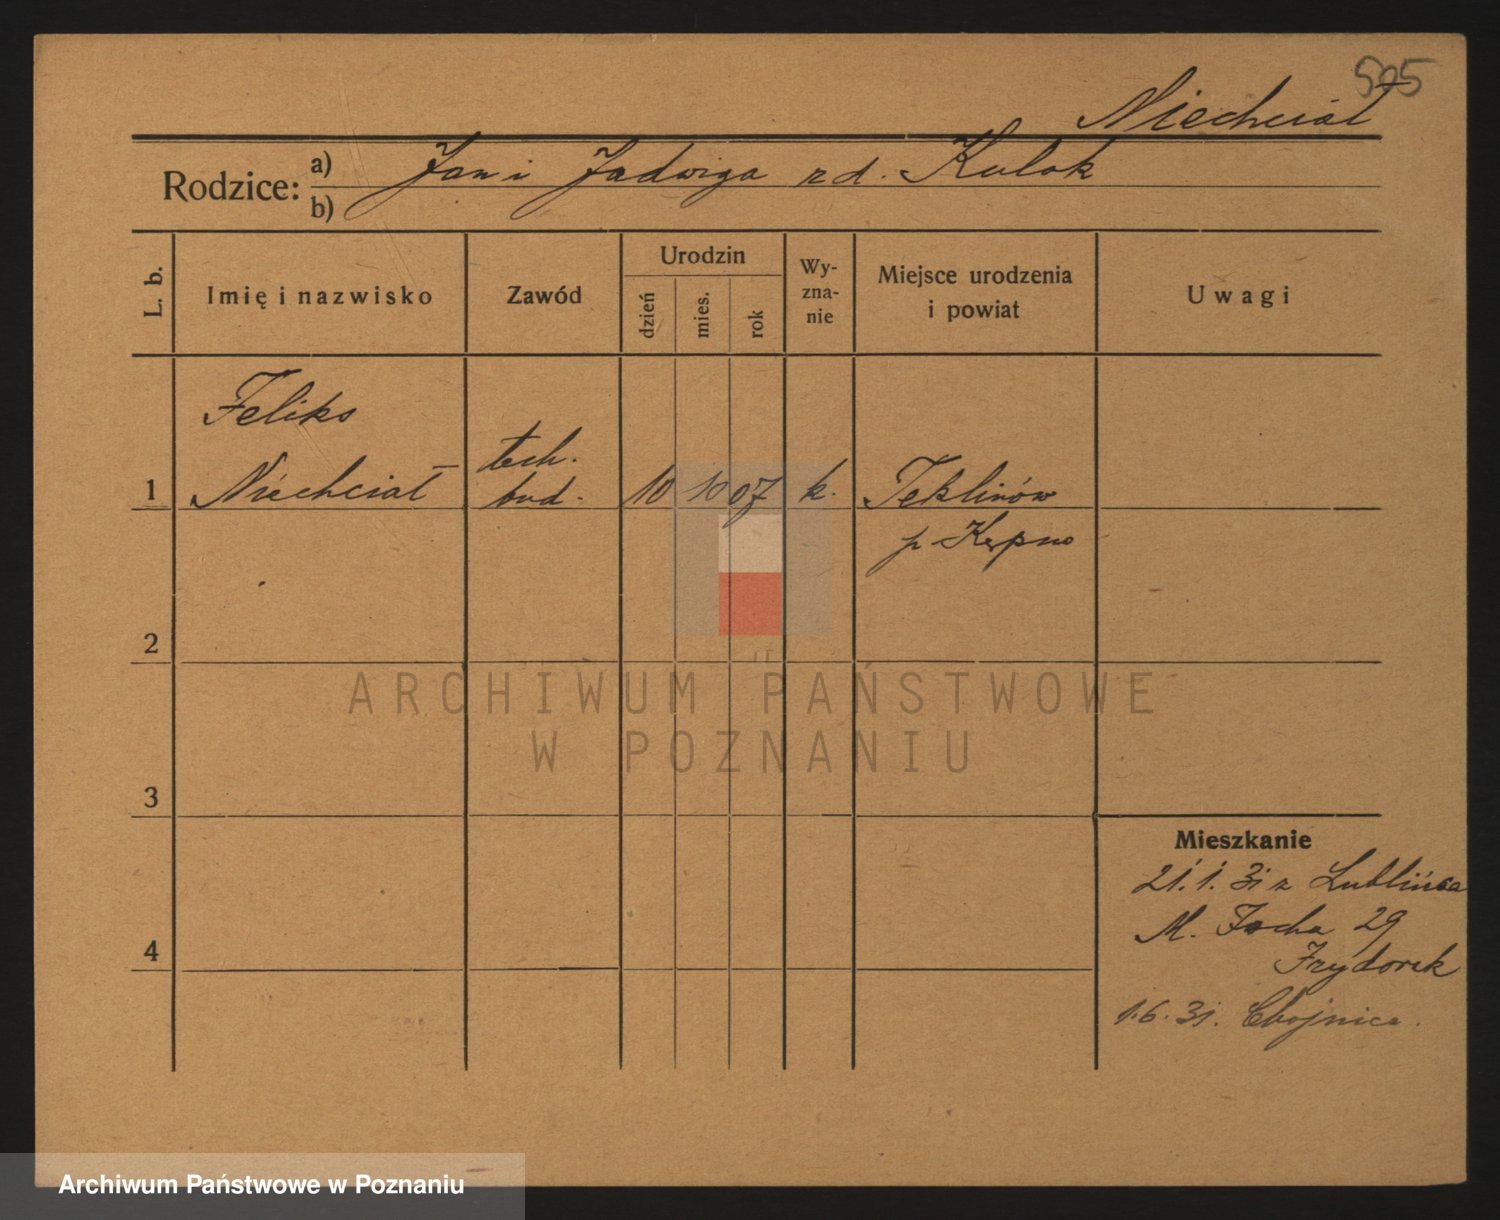 505
Niechciał
Rodzice: a) Jan i Jadwiga zd. Kulak
b)
L. b.
Imię i nazwisko
Zawód
Urodzin
dzień
mies.
rok
Wy-
zna-
nie
Miejsce urodzenia
i powiat
Uwagi
Feliks
1 Niechciał
tech.
bud.
10 10 07 k. Teklinów
p Kępno
2
ARCHIWUM PAŃSTWOWE
W POZNANIU
3
Mieszkanie
21.1.31 z Lublińca
M. Focha 29
4
Frydorek
1.6.31. Chojnice.
Archiwum Państwowe w Poznaniu